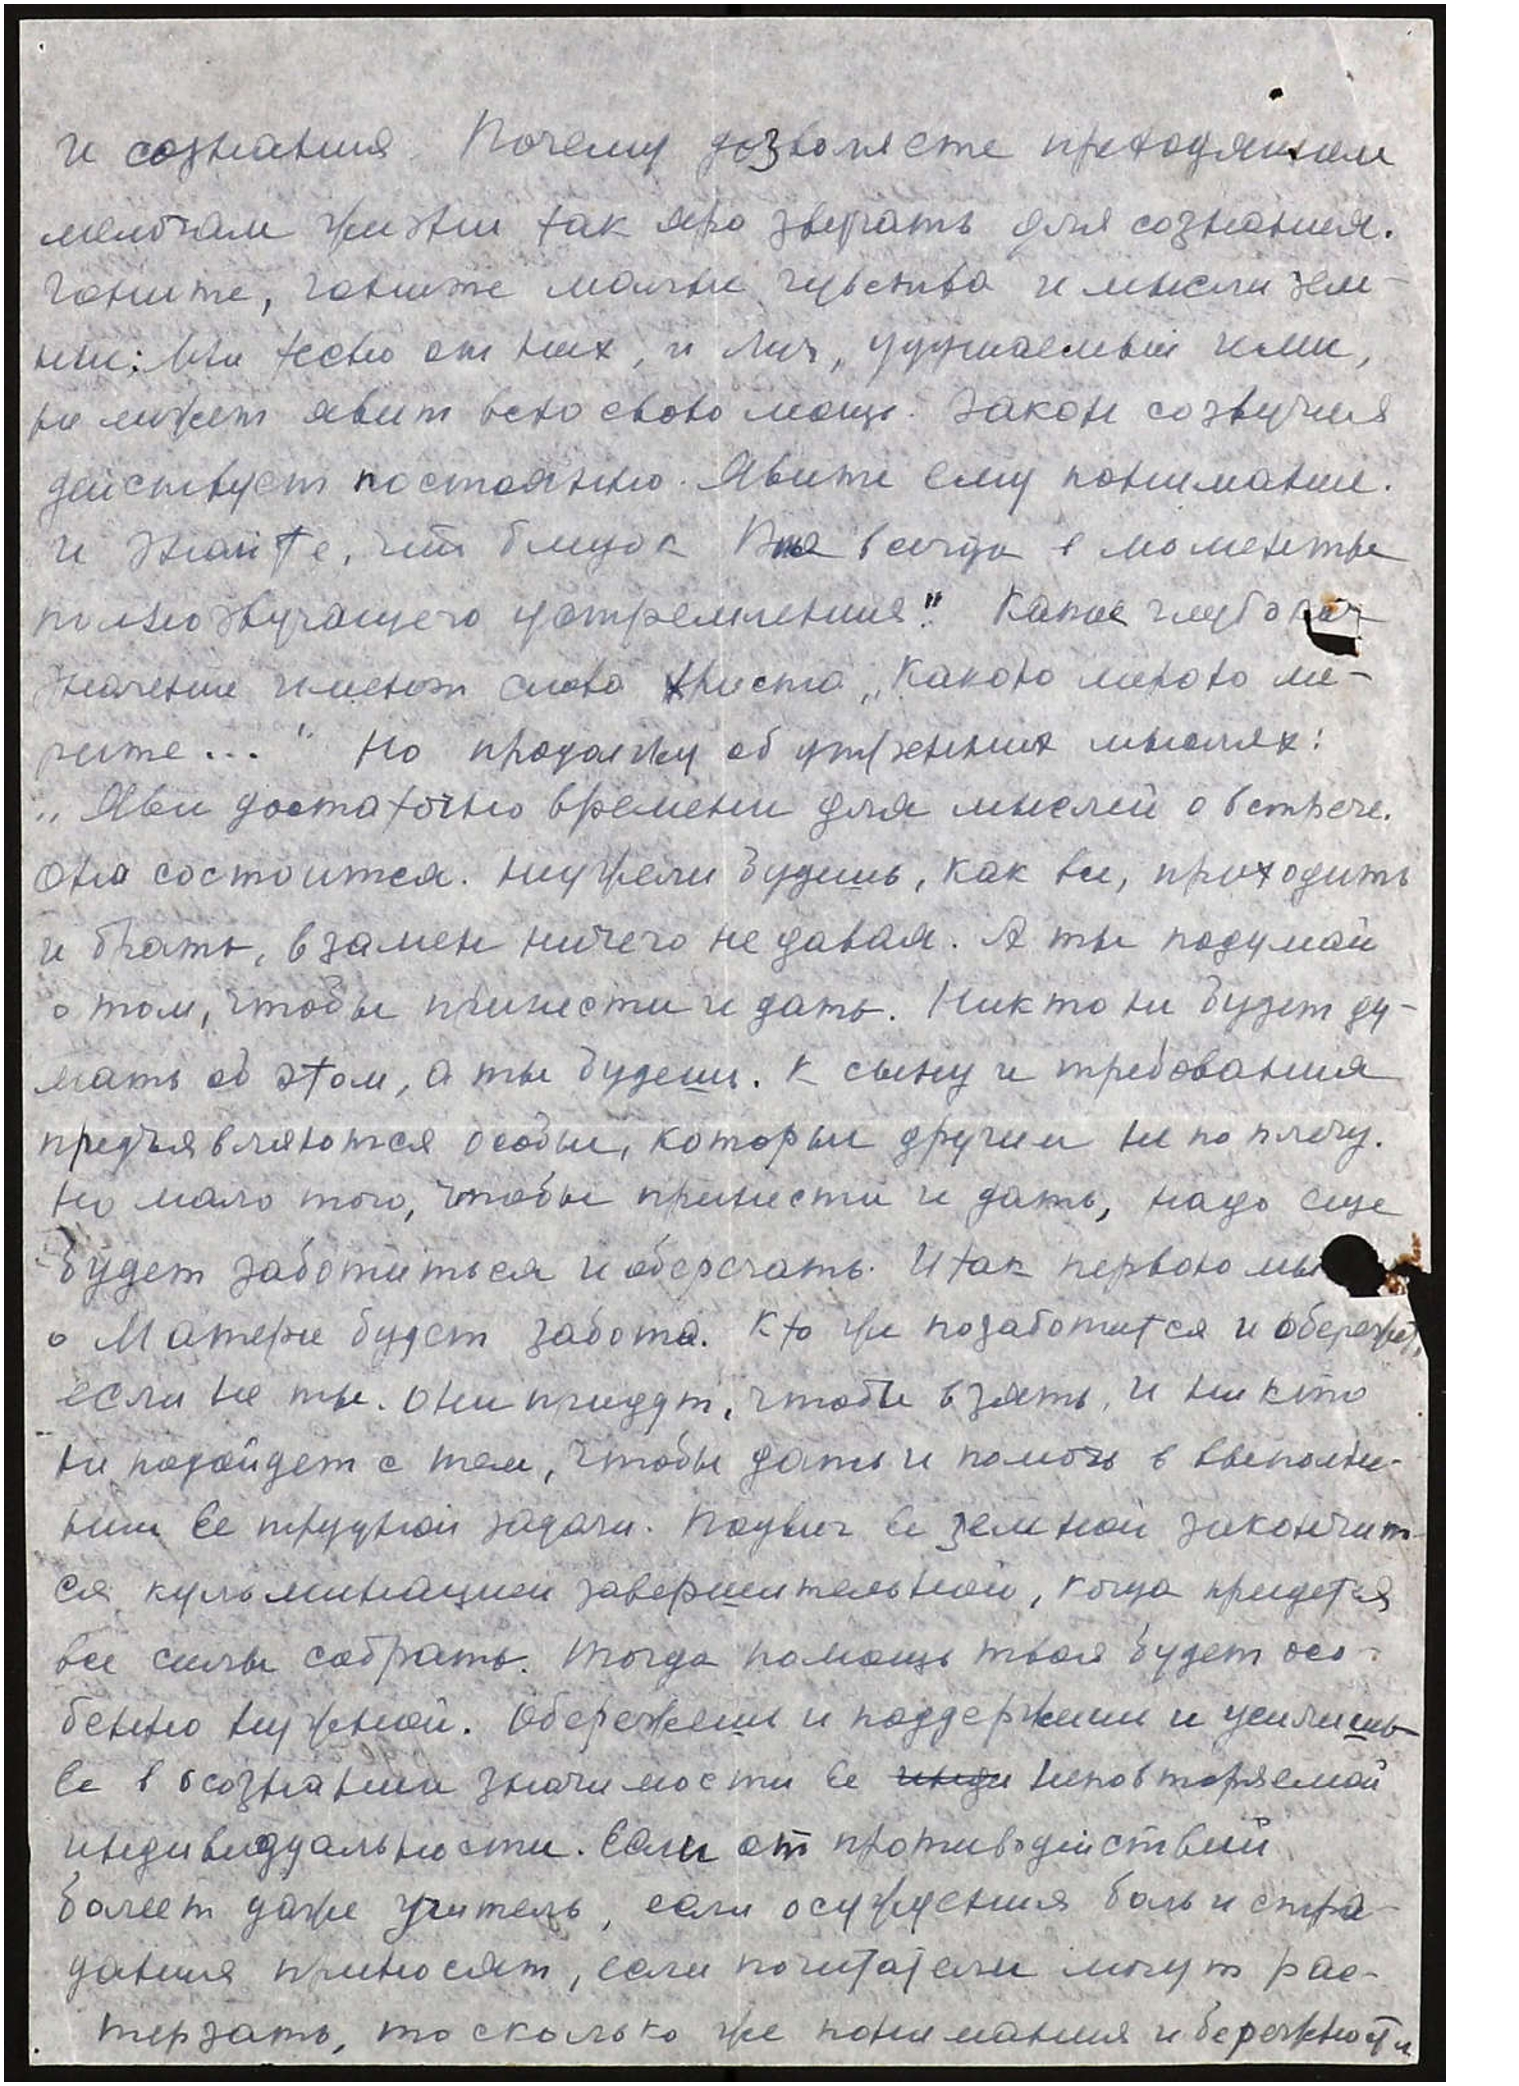 и сознания. Почему дозволяете преходящим
мелочам жизни так ярко звучать для сознания.
Гоните, гоните малые чувства и мысли зем-
ные: Мне тесно от них, и Луч, удушаемый ими,
не может явить всю свою мощь. Закон созвучия
действует постоянно. Явите ему понимание.
и знайте, что близок всегда в моменты
полнозвучащего устремления". Какое глубокое
значение имеют слова Христа „Какою мерою ме-
рите..." Но продолжу об утренних мыслях:
„Яви достаточно времени для мыслей о встрече.
Она состоится. Неужели будешь, как все, приходить
и брать, взамен ничего не давая. А ты подумай
о том, чтобы принести и дать. Никто не будет ду-
мать об этом, а ты будешь. К сыну и требования
предъявляются особые, которые другим не по плечу.
Но мало того, чтобы принести и дать, надо еще
будет заботиться и оберегать. Итак первою мы
о Матери будет забота. Кто же позаботится и обережет,
если не ты. Они придут, чтобы взять, и никто
не подойдет с тем, чтобы дать и помочь в выполне-
нии ее трудной задачи. Подвиг ее земной закончит-
ся кульминацией завершительной, когда придется
все силы собрать. Тогда помощь твоя будет осо-
бенно нужной. Обережешь и поддержишь и усилишь
ее в осознании значимости ее инди неповторяемой
индивидуальности. Если от противодействий
болеет даже Учитель, если осуждения боль и стра-
дания приносят, если почитатели могут рас-
терзать, то сколько же понимания и бережности